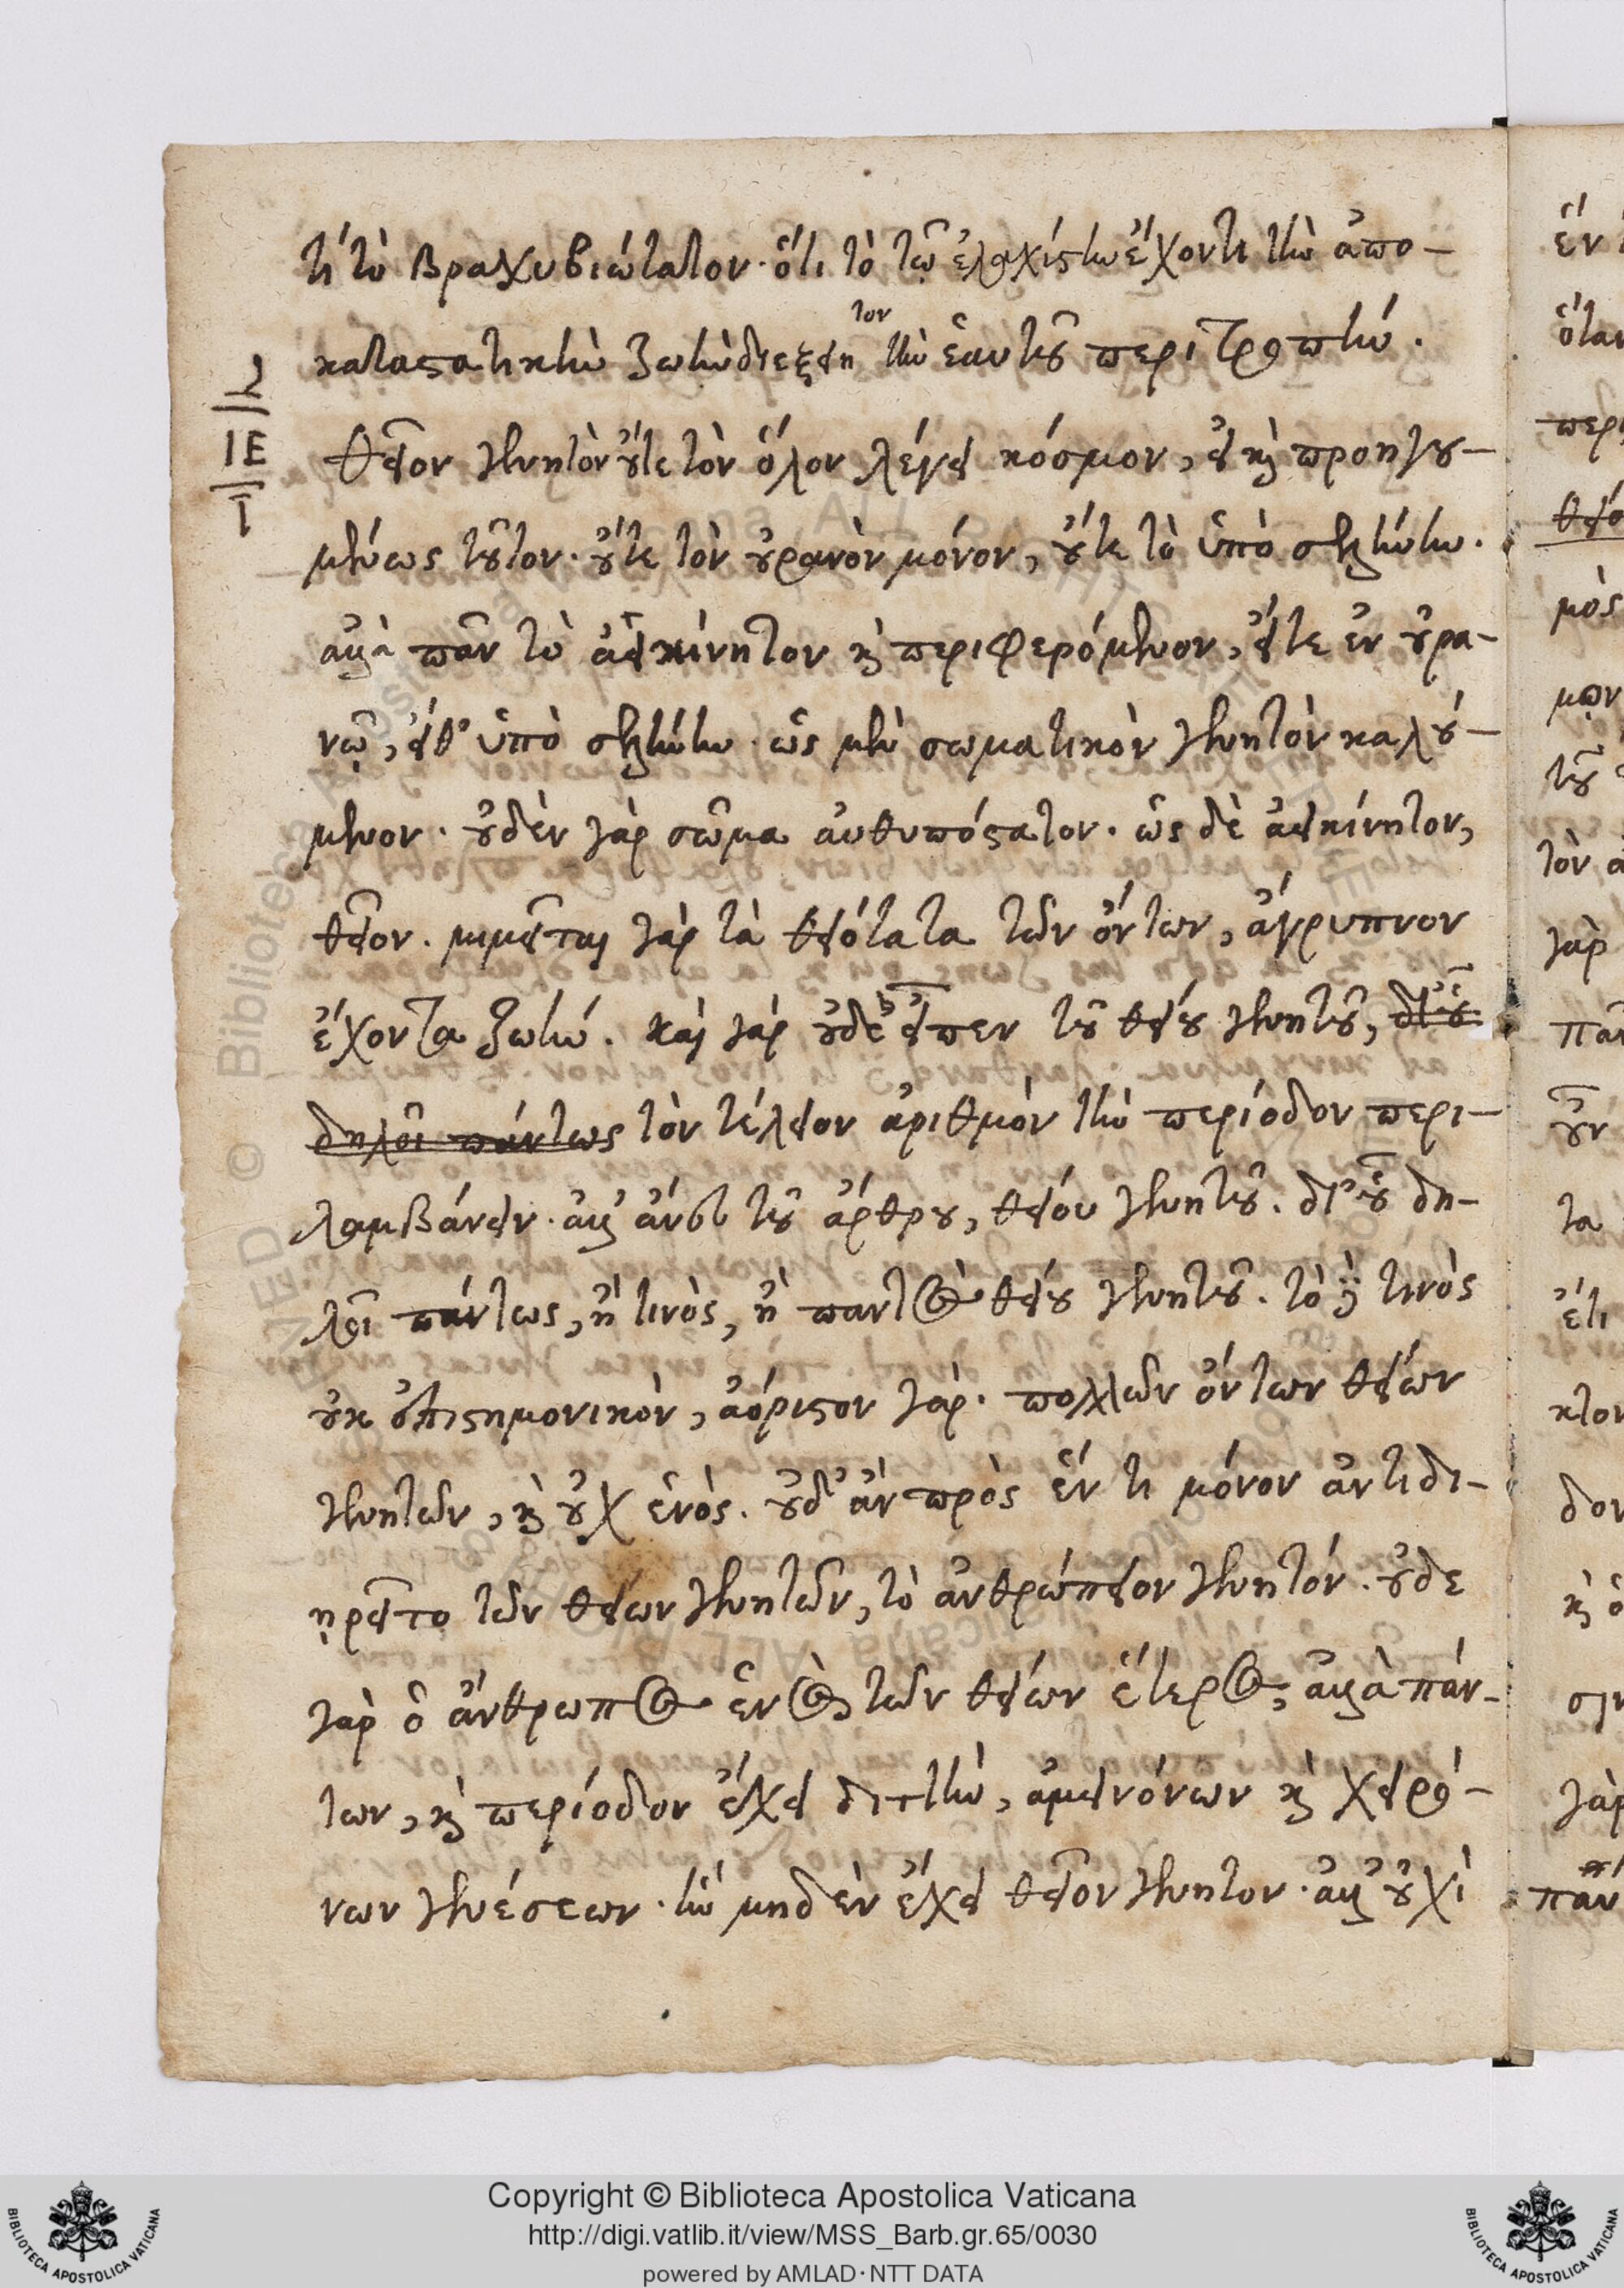 τί τὸ βραχυβιώτατον· ὅτι τὸ τῷ ἐλαχίστῳ ἔχοντι τὴν ἀπο-
καταστατικὴν ζωὴν διεξειη τον τὴν ἑαυτοῦ περιτροπήν.
ϛ ΙΕ Γ
θεῖον γεννητὸν οὔτε τὸν ὅλον λέγει κόσμον, εἰ καὶ προηγου-
μένως τοῦτον· οὔτε τὸν οὐρανὸν μόνον, οὔτε τὸ ὑπὸ σελήνην.
ἀλλὰ πᾶν τὸ ἀεικίνητον καὶ περιφερόμενον, εἴτε ἐν οὐρα-
νῷ, εἴθ' ὑπὸ σελήνην· ὡς μὲν σωματικὸν γεννητὸν καλού-
μενον· οὐδὲν γὰρ σῶμα αὐθυπόστατον· ὡς δὲ ἀεικίνητον,
θεῖον. μιμεῖται γὰρ τὰ θειότατα τῶν ὄντων, ἄγρυπνον
ἔχοντα ζωήν. καὶ γὰρ οὐδὲ εἶπεν τοῦ θείου γεννητοῦ, δι' οὗ
δηλοῖ πάντως τὸν τέλειον ἀριθμὸν τὴν περίοδον περι-
λαμβάνειν· ἀλλ' ἄνευ τοῦ ἄρθρου, θείου γεννητοῦ. δι' οὗ δη-
λοῖ πάντως, ἢ τινὸς, ἢ παντὸς θείου γεννητοῦ. τὸ δὲ τινὸς
οὐκ ἐπιστημονικὸν, ἀόριστον γάρ· πολλῶν ὄντων θείων
γεννητῶν, καὶ οὐχ ἑνὸς. οὐδ' ἂν πρὸς ἕν τι μόνον ἀντιδι-
ῃρεῖτο τῶν θείων γεννητῶν, τὸ ἀνθρώπειον γεννητόν. οὐδε
γὰρ ὁ ἄνθρωπος ἑνὸς τῶν θείων ἕτερος, ἀλλὰ πάν-
των, καὶ περίοδον ἔχει διττὴν, ἀμεινόνων καὶ χειρό-
νων γεννέσεων· ἣν μηδὲν ἔχει θεῖον γεννητον· ἀλλ' οὐχὶ